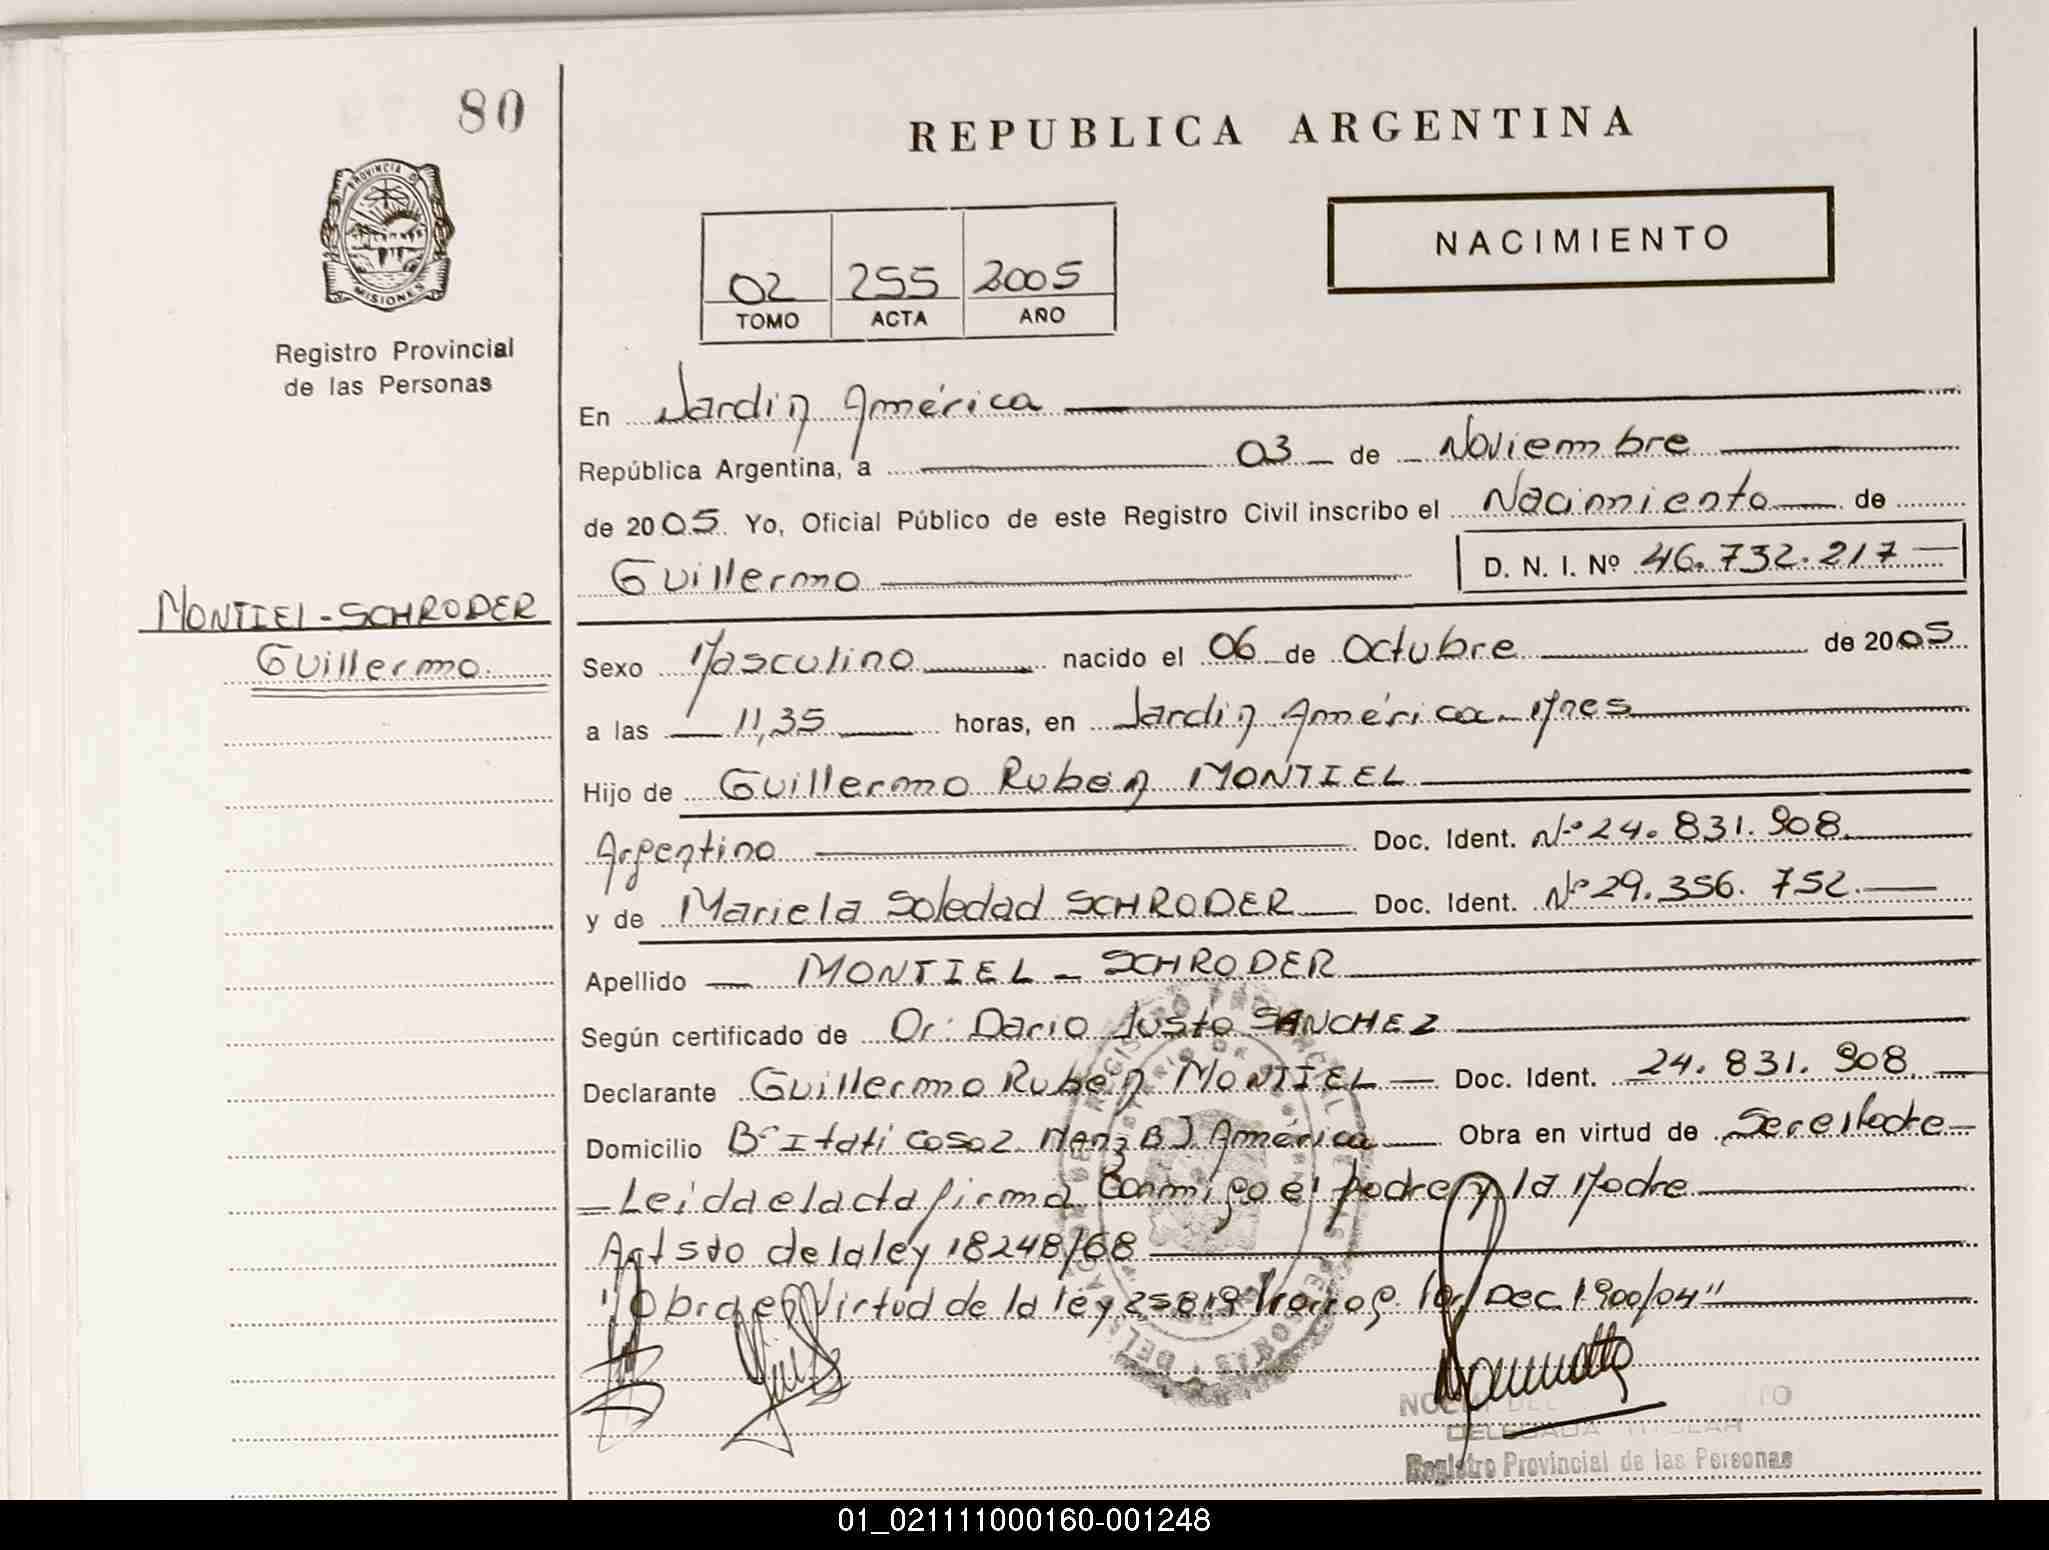 80
REPUBLICA ARGENTINA
PROVINCIA DE
MISIONES
Registro Provincial
de las Personas
NACIMIENTO
02 255 2005
TOMO ACTA AÑO
En Jardin América
República Argentina, a 03 de Noviembre
de 2005. Yo, Oficial Público de este Registro Civil inscribo el Nacimiento de
Guillermo D. N. I. Nº 46.732.217
MONTIEL-SCHRODER
Guillermo
Sexo Masculino nacido el 06 de Octubre de 2005
a las 11,35 horas, en Jardin América - Mnes
Hijo de Guillermo Ruben MONTIEL
Argentino Doc. Ident. Nº 24.831.908
y de Mariela Soledad SCHRODER Doc. Ident. Nº 29.356.752.
Apellido MONTIEL - SCHRODER
Según certificado de Dr: Dario Justo SANCHEZ
Declarante Guillermo Ruben MONTIEL Doc. Ident. 24.831.908
Domicilio Bº Itati casa 2 Manz B J América Obra en virtud de
Leida el acta firma conmigo el padre y la Madre
Art 5to de la ley 18248/68
"Obra en Virtud de la ley 25819 Dec 1900/04"
DELEGADA TITULAR
Registro Provincial de las Personas
01_021111000160-001248